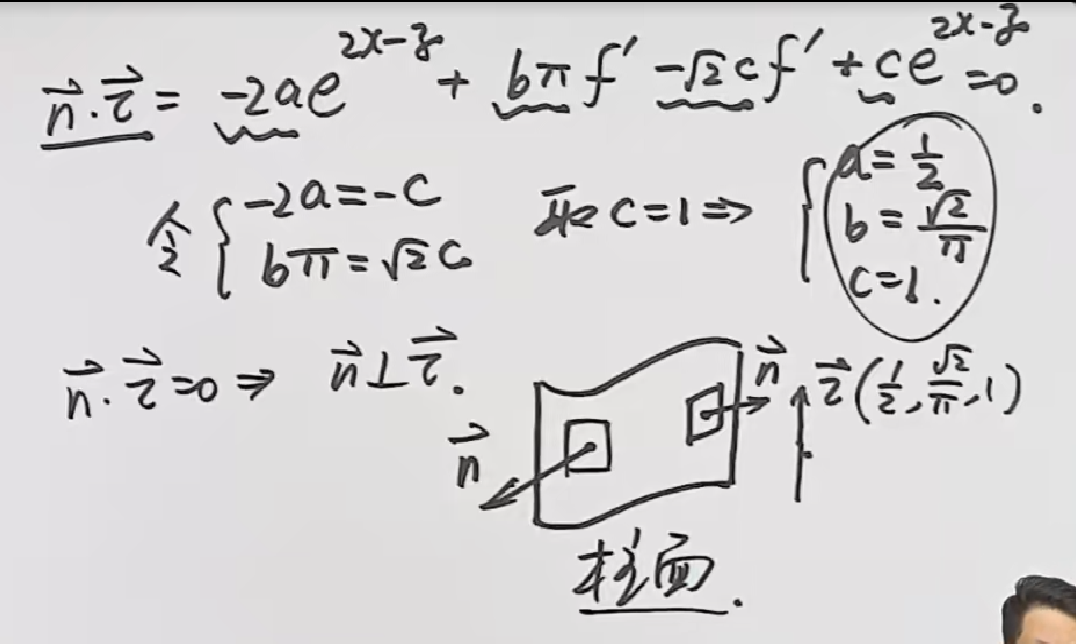 n⃗·τ⃗ = -2ae^{2x-z} + bπf′ -√2cf′ + ce^{2x-z} = 0.
令 { -2a=-c 取 c=1 ⇒ { a=1/2
bπ=√2c b=√2/π
c=1.
n⃗·τ⃗=0 ⇒ n⃗⊥τ⃗. n⃗ τ⃗(1/2, √2/π, 1)
n⃗
柱面.